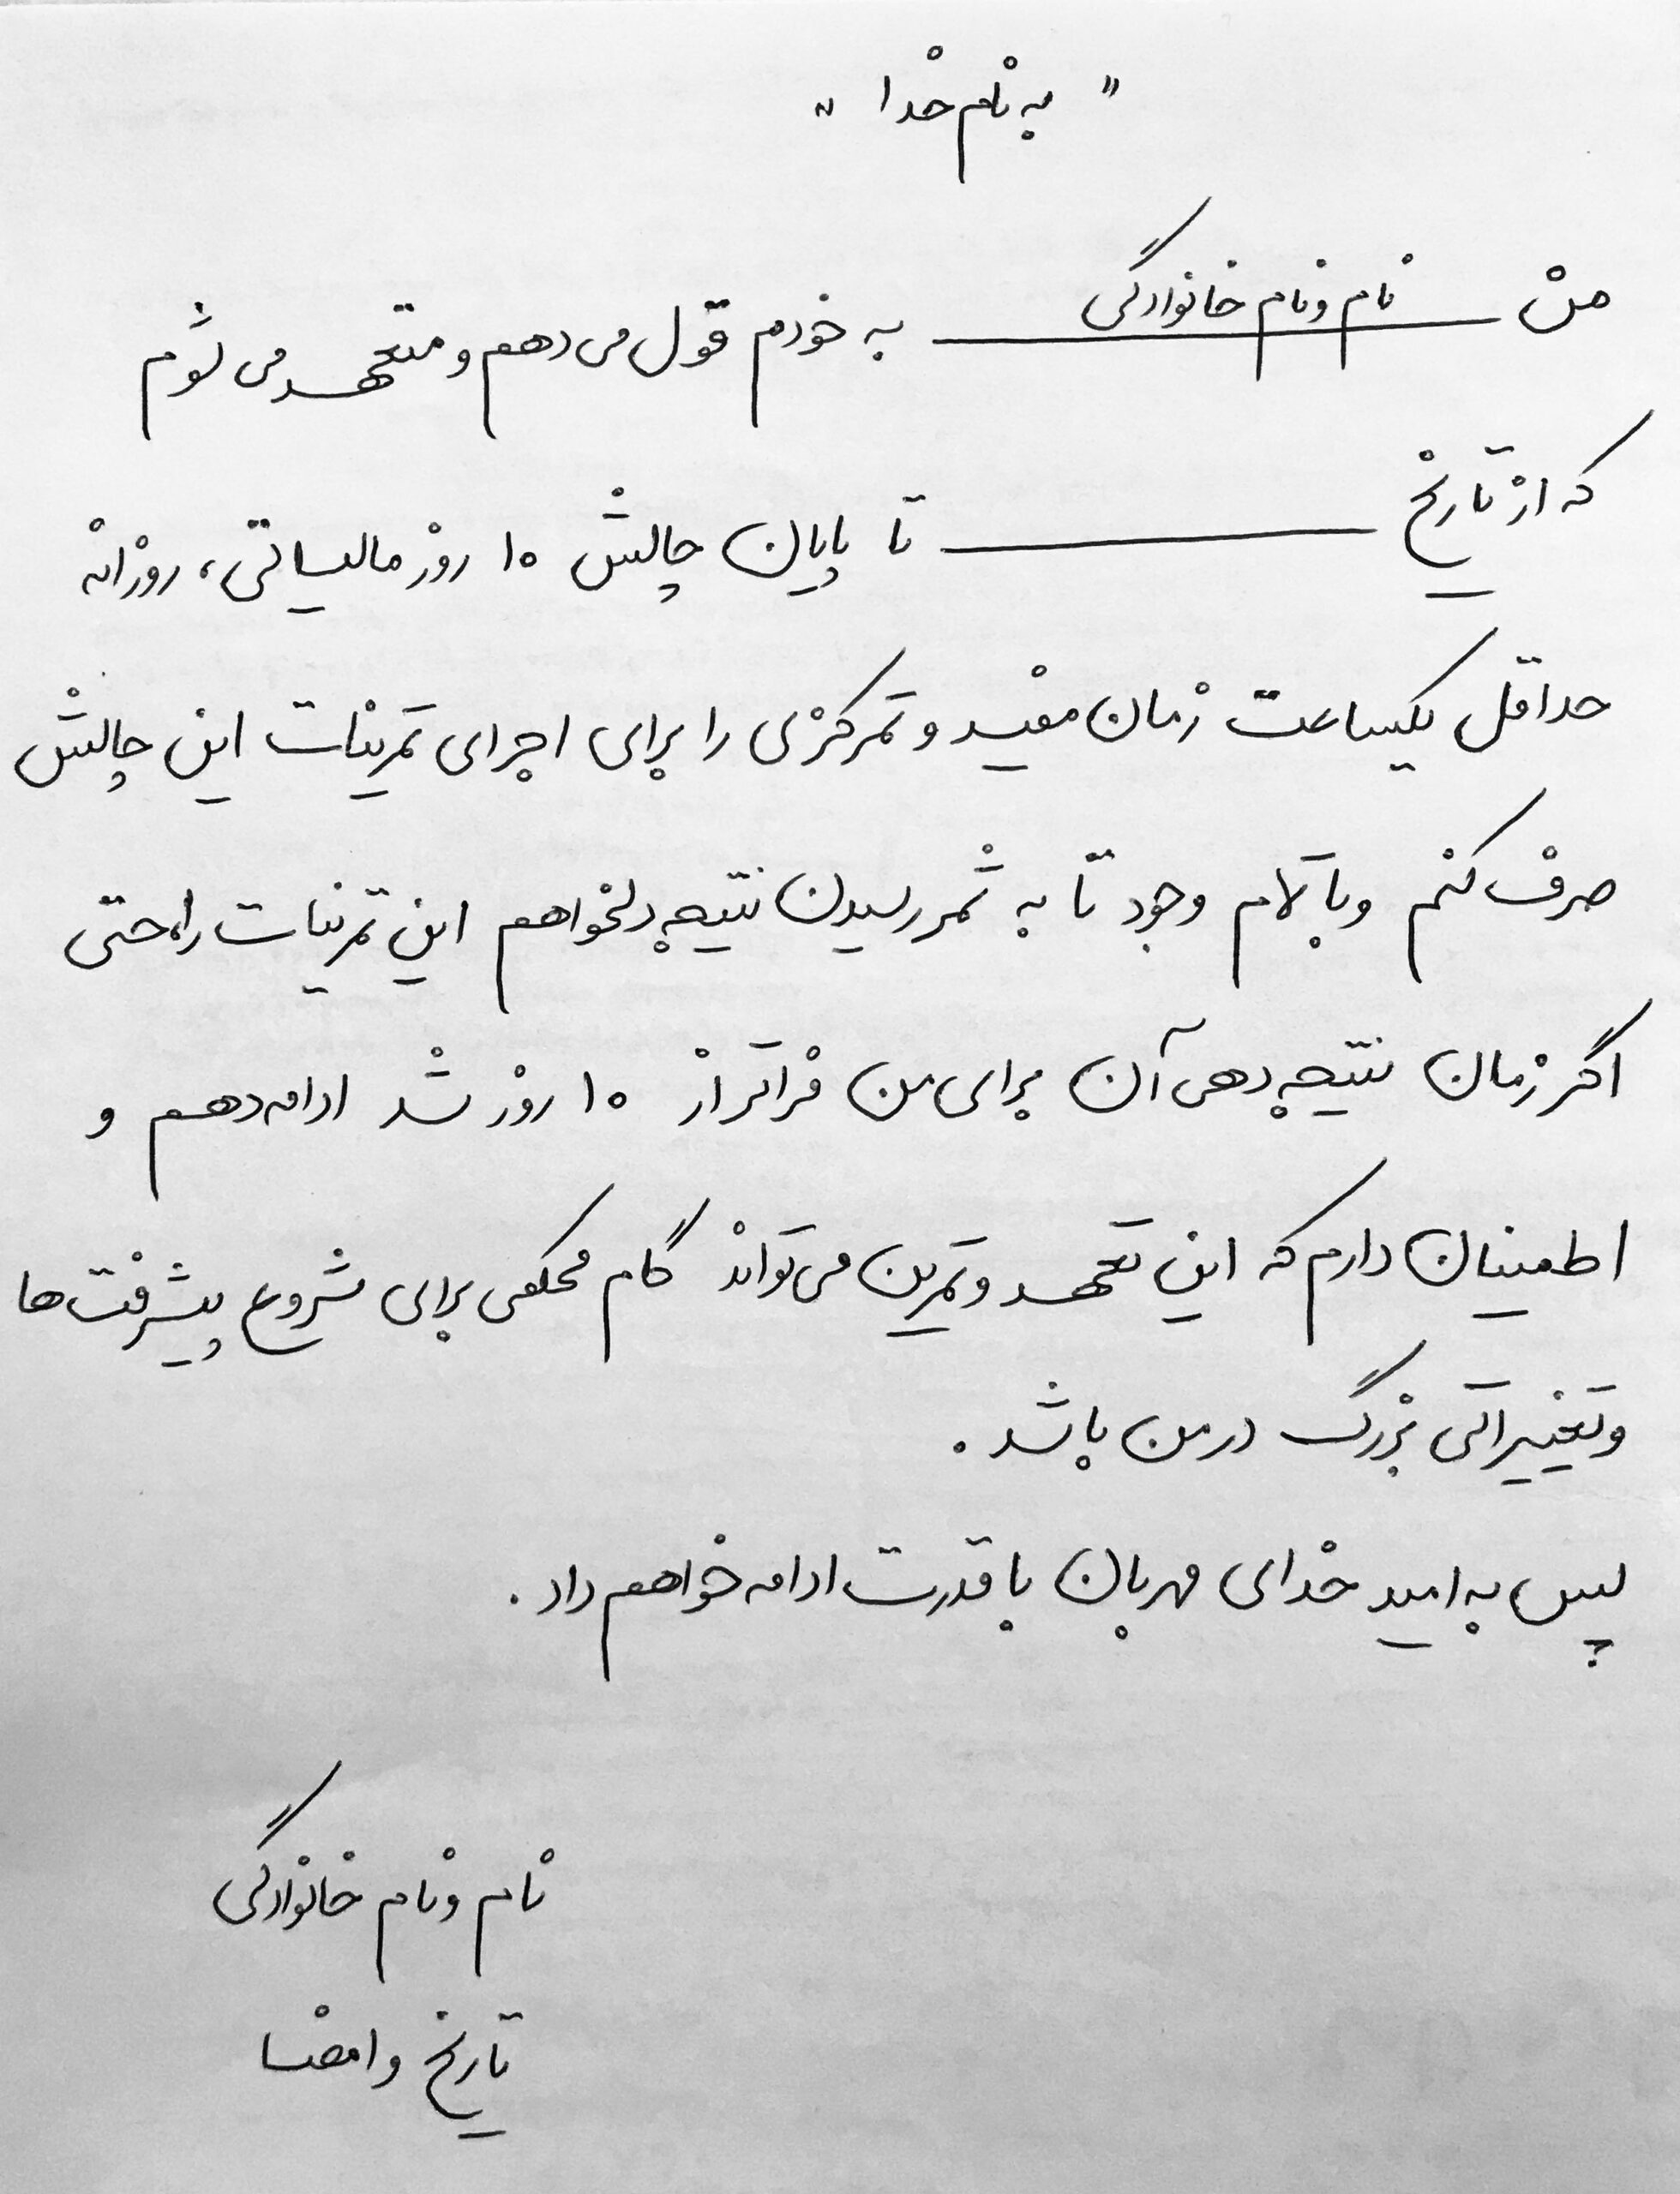 " به نام خدا "
من نام و نام خانوادگی به خودم قول می دهم و متعهد می شوم
که از تاریخ ــــــــــ تا پایان چالش ۱۰ روز مالیساتی، روزانه
حداقل یکساعت زمان مفید و تمرکزی را برای اجرای تمرینات این چالش
صرف کنم و با تمام وجود تا به ثمر رسیدن نتیجه دلخواهم این تمرینات را، حتی
اگر زمان نتیجه دهی آن برای من فراتر از ۱۰ روز شد ادامه دهم و
اطمینان دارم که این تعهد و تمرین می تواند گام محکمی برای شروع پیشرفت ها
و تغییراتی بزرگ در من باشد .
پس به امید خدای مهربان با قدرت ادامه خواهم داد .
نام و نام خانوادگی
تاریخ و امضا